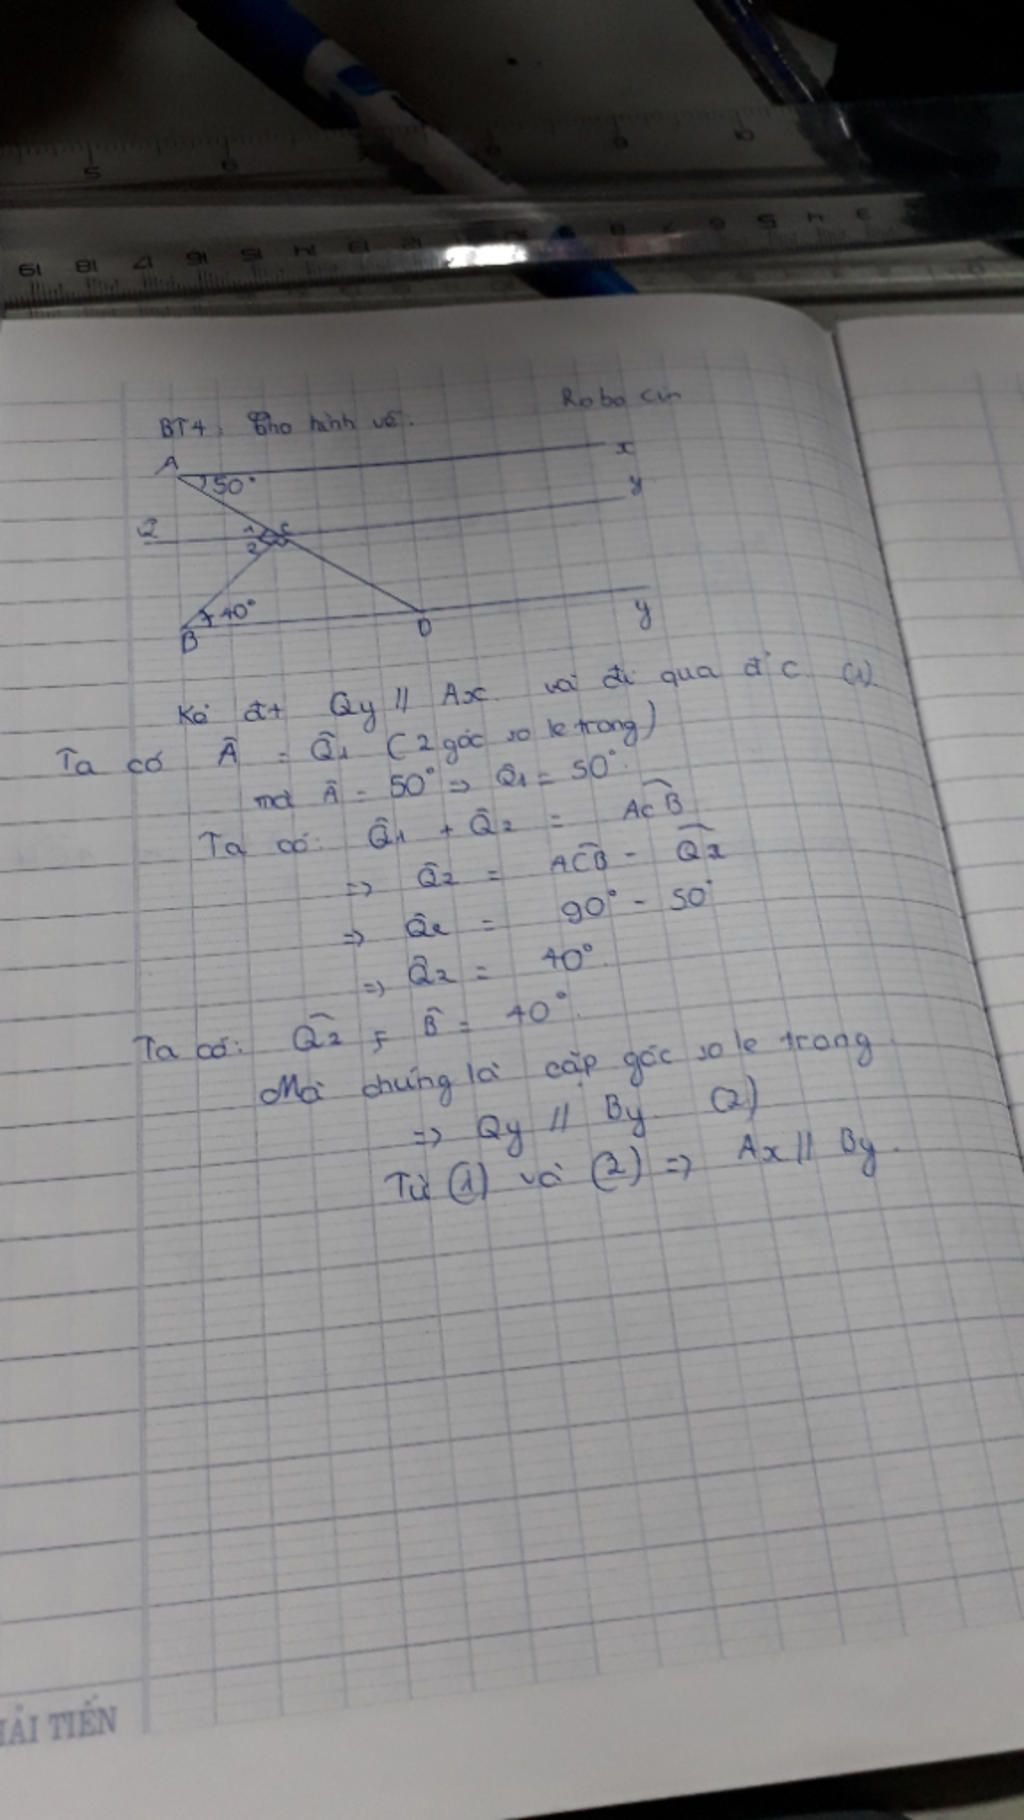 5 6 8 9 10
19 18 17 16 15 14 13 12 8 7 6 5 4 3
Robo cin
BT4: Cho hình vẽ.
A x
50°
y
Q 1 C
2
40°
B D y
Kẻ đt Qy // Ax và đi qua đ' C (1)
Ta có Â = Q̂1 (2 góc so le trong)
mà Â = 50° => Q̂1 = 50°.
Ta có: Q̂1 + Q̂2 = AĈB
=> Q̂2 = AĈB - Q̂1
=> Q̂2 = 90° - 50°
=> Q̂2 = 40°.
Ta có: Q̂2 = B̂ = 40°.
Mà chúng là cặp góc so le trong
=> Qy // By (2)
Từ (1) và (2) => Ax // By.
HẢI TIẾN